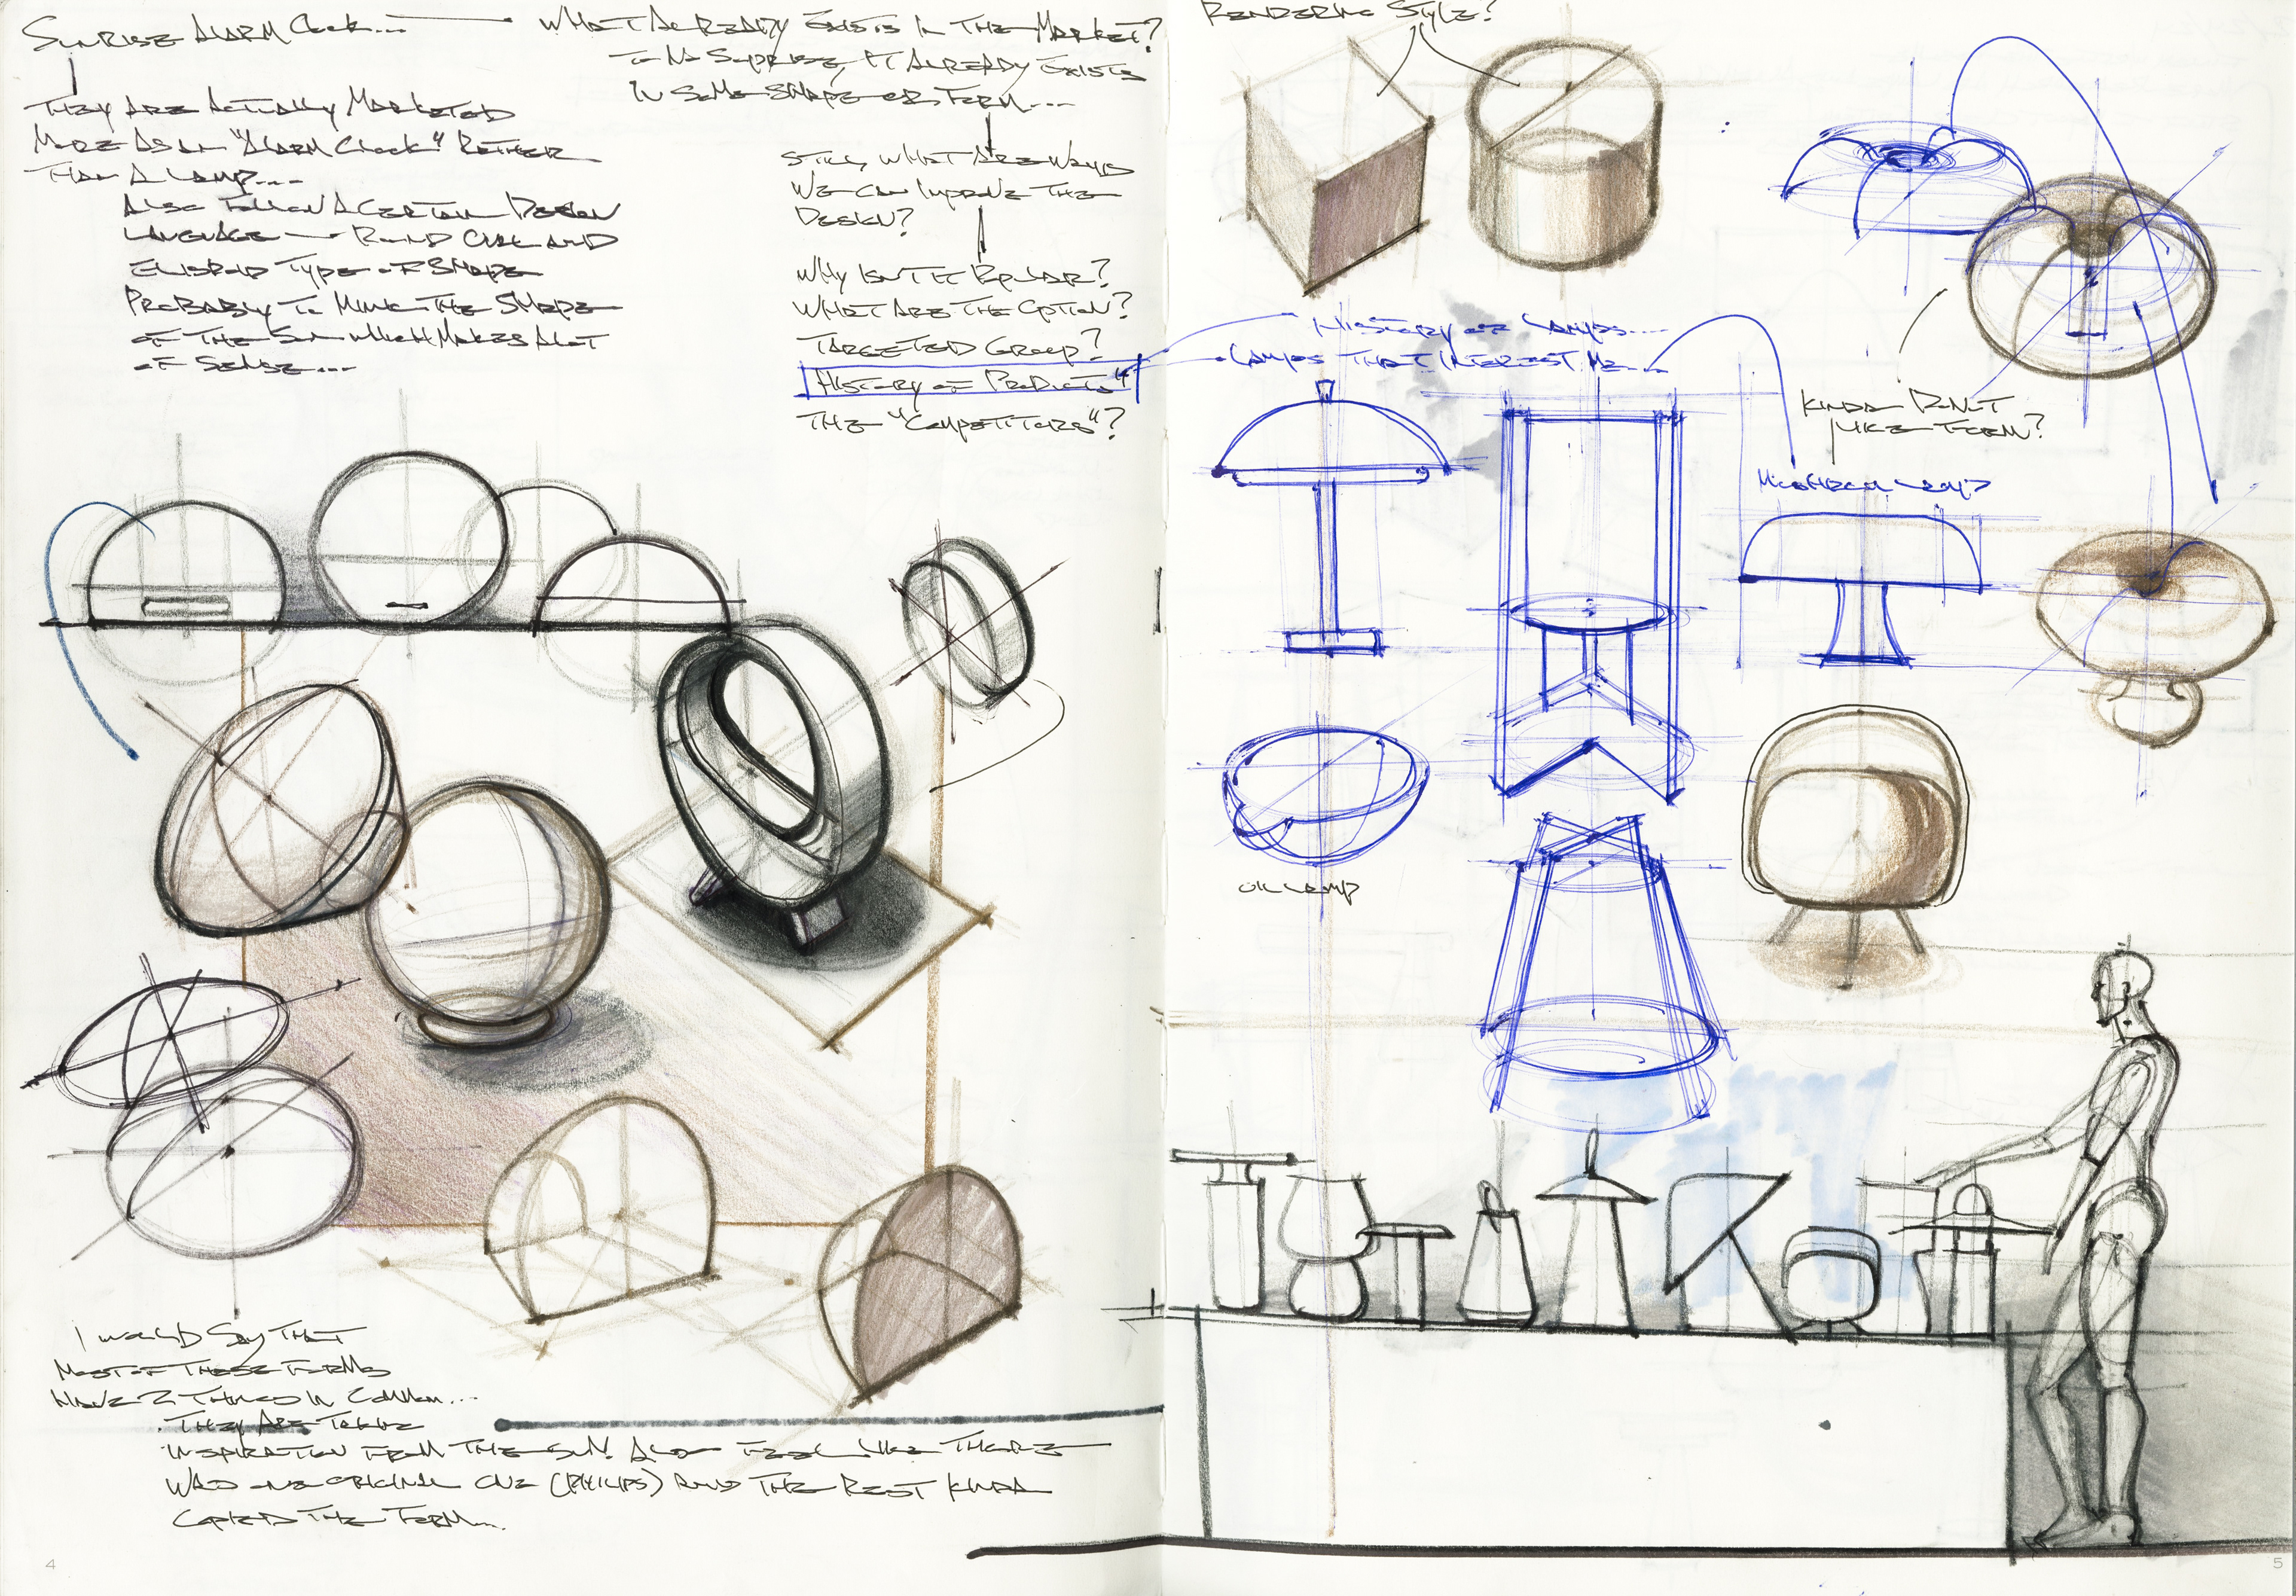 Sunrise Alarm Clock...
They are actually marketed
more as an "Alarm Clock" rather
than a lamp....
Also follow a certain design
language → round curve and
type of shape
probably to mimic the shape
of the sun which makes alot
of sense...
What already exists in the market?
To no suprise, it already exists
in some shape or form....
Still, what are ways
we can improve the
design?
Why isn't it popular?
What are the option?
Targeted group?
"History of Products"
The "Competitors"?
I would say that
most of these forms
have 2 things in common...
. They are taking
inspiration from the sun! Also feel like there
was one original one (Philips) and the rest kinda
copied the form...
4
Rendering style?
History of lamps....
Lamps that interest me...
Kinda donut
like form?
Mushroom lamp
oil lamp
5